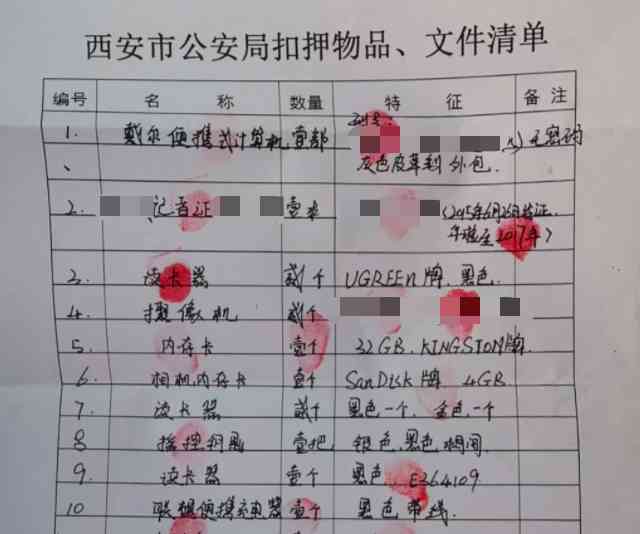 西安市公安局扣押物品、文件清单
编号 名称 数量 特征 备注
1. 戴尔便携式计算机 壹部 型号: 无密码
灰色皮革制外包.
2. 记者证 壹本 (2015年6月26日发证,
年检至2017年)
3. 读卡器 贰个 UGREEN牌.黑色.
4. 摄像机 贰个
5. 内存卡 壹个 32GB.KINGSTON牌.
6. 相机内存卡 壹个 SanDisk牌 4GB
7. 读卡器 贰个 黑色一个.金色一个
8 摇控钥匙 壹把 银色.黑色相间.
9. 读卡器 壹个 黑色. E364109
10 联想便携充电器 壹个 黑色带线.